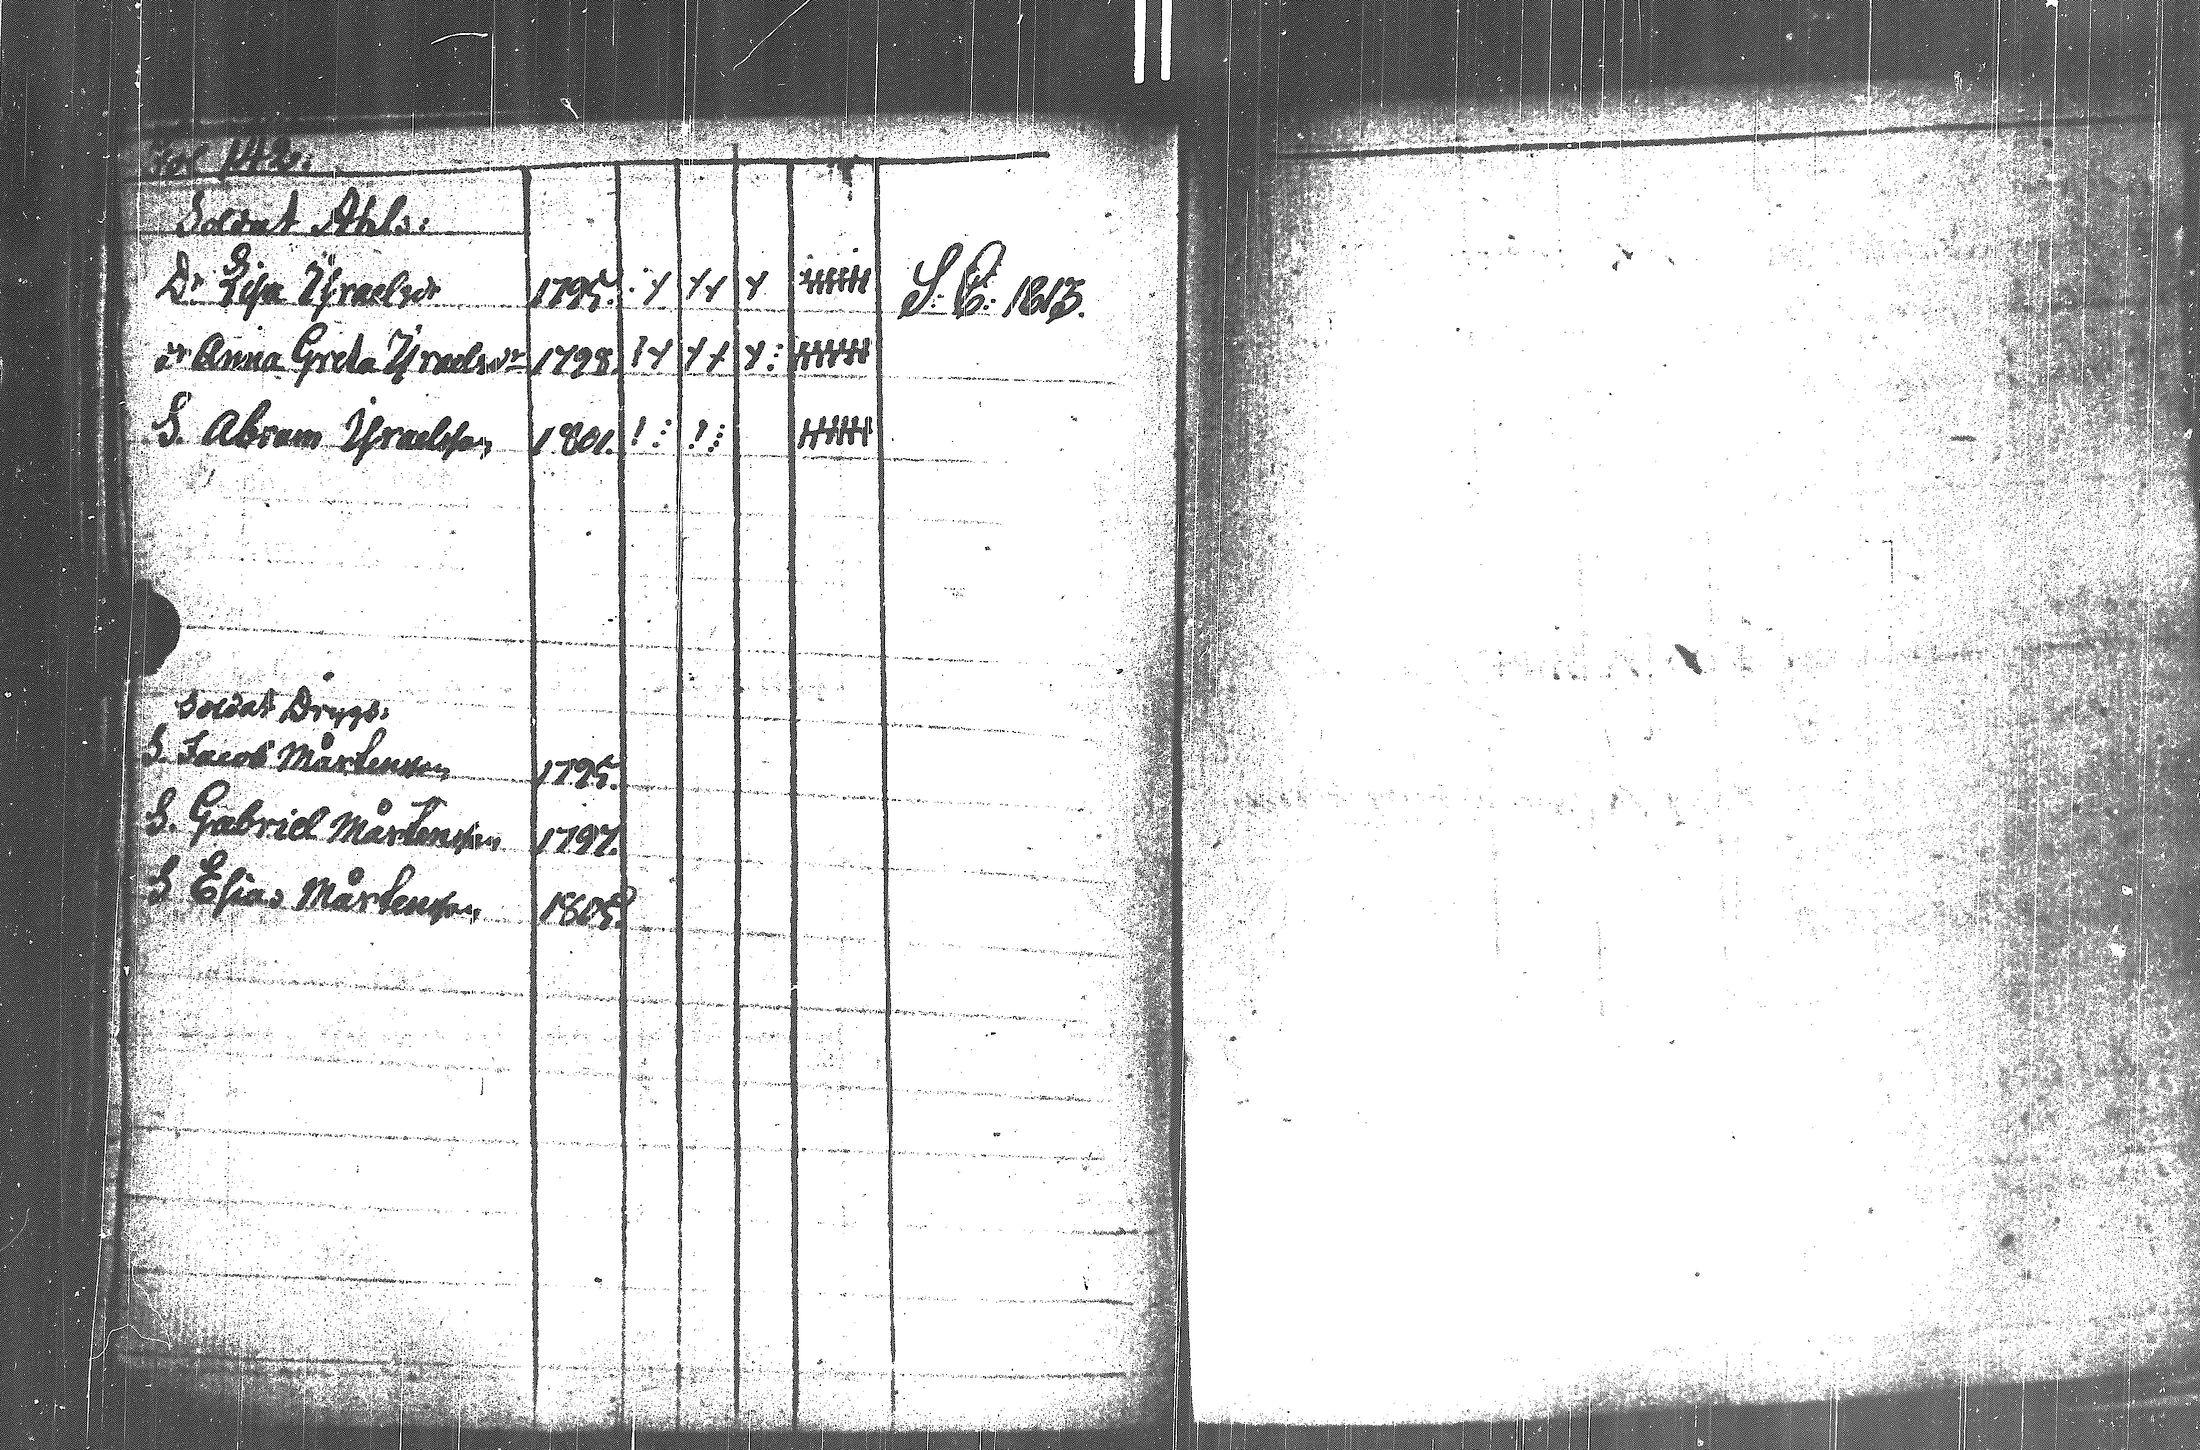 Fol 142.
Soldat Ahls:
Dr Lisa Ÿsraelsdr 1795. S: C: 1813.
dr Anna Greta Ÿsraelsdr 1798.
S. Abram Ÿsraelsson 1801.
Soldat Drygs:
S. Jacob Mårtensson 1795.
S. Gabriel Mårtensson 1797.
S Esias Mårtensson 1805.